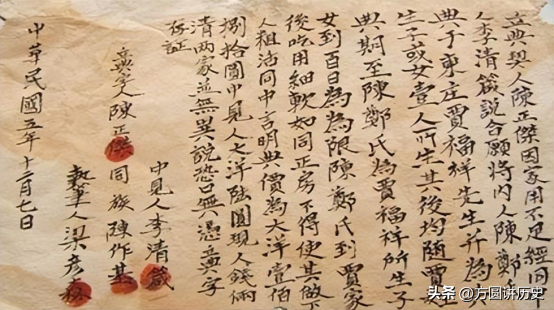 立典契人陳正傑因家用不足經同中
人李清箴說合願將内人陳鄭氏
典于東庄賈福祥先生并為其
生子或女壹人所生其後均隨賈
典期至陳鄭氏為賈福祥所生子
女到百日為為限陳鄭氏到賈家
後吃用細軟如同正房下得使其做下
人粗活同中言明典價為大洋壹佰
捌拾圓中見人之洋陸圓現人錢兩
清两家並無異說恐口無憑典字
存証
中見人李清箴
立典字人陳正傑 同族陳作
執筆人梁彦森
中華民國五年十二月七日
头条 @方圆讲历史